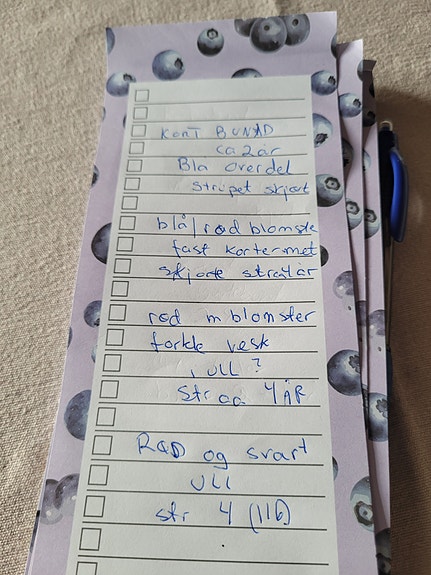 KORT BUNAD
ca 2år
Bla overdel
Stripet skjørt
blå/rød blomste
fast kortermet
skjorte str 4år
rød m blomster
forkle vesk
ull ?
Str ca 4 ÅR
RØD og svart
Ull
str 4 (116)